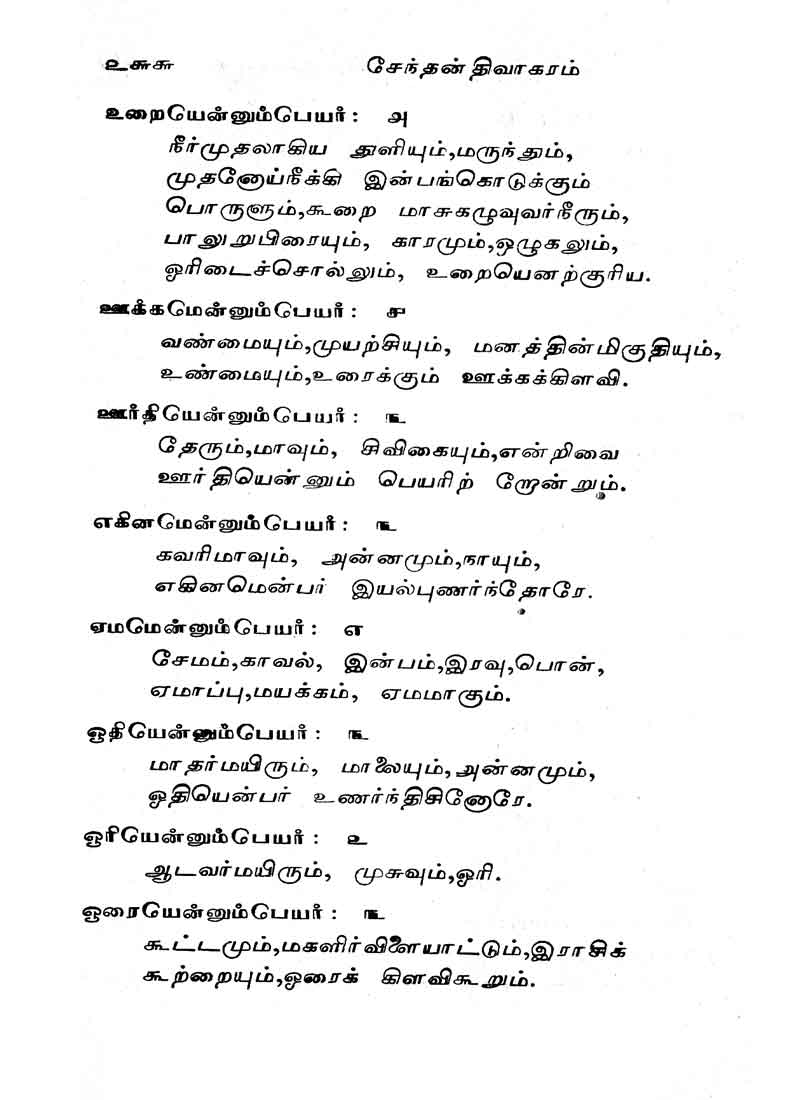 ௨௬௬ சேந்தன் திவாகரம்
உறையென்னும்பெயர் : ௮
நீர்முதலாகிய துளியும்,மருந்தும்,
முதனோய்நீக்கி இன்பங்கொடுக்கும்
பொருளும்,கூறை மாசுகழுவுவர்நீரும்,
பாலுறுபிரையும், காரமும்,ஒழுகலும்,
ஓரிடைச்சொல்லும், உறையெனற்குரிய.
ஊக்கமென்னும்பெயர் : ௪
வண்மையும்,முயற்சியும், மனத்தின்மிகுதியும்,
உண்மையும்,உரைக்கும் ஊக்கக்கிளவி.
ஊர்தியென்னும்பெயர் : ௩
தேரும்,மாவும், சிவிகையும்,என்றிவை
ஊர்தியென்னும் பெயரிற் றோன்றும்.
எகினமென்னும்பெயர் : ௩
கவரிமாவும், அன்னமும்,நாயும்,
எகினமென்பர் இயல்புணர்ந்தோரே.
ஏமமென்னும்பெயர் : ௭
சேமம்,காவல், இன்பம்,இரவு,பொன்,
ஏமாப்பு,மயக்கம், ஏமமாகும்.
ஓதியென்னும்பெயர் : ௩
மாதர்மயிரும், மாலையும்,அன்னமும்,
ஓதியென்பர் உணர்ந்திசினோரே.
ஓரியென்னும்பெயர் : ௨
ஆடவர்மயிரும், முசுவும்,ஓரி.
ஓரையென்னும்பெயர் : ௩
கூட்டமும்,மகளிர்விளையாட்டும்,இராசிக்
கூற்றையும்,ஓரைக் கிளவிகூறும்.